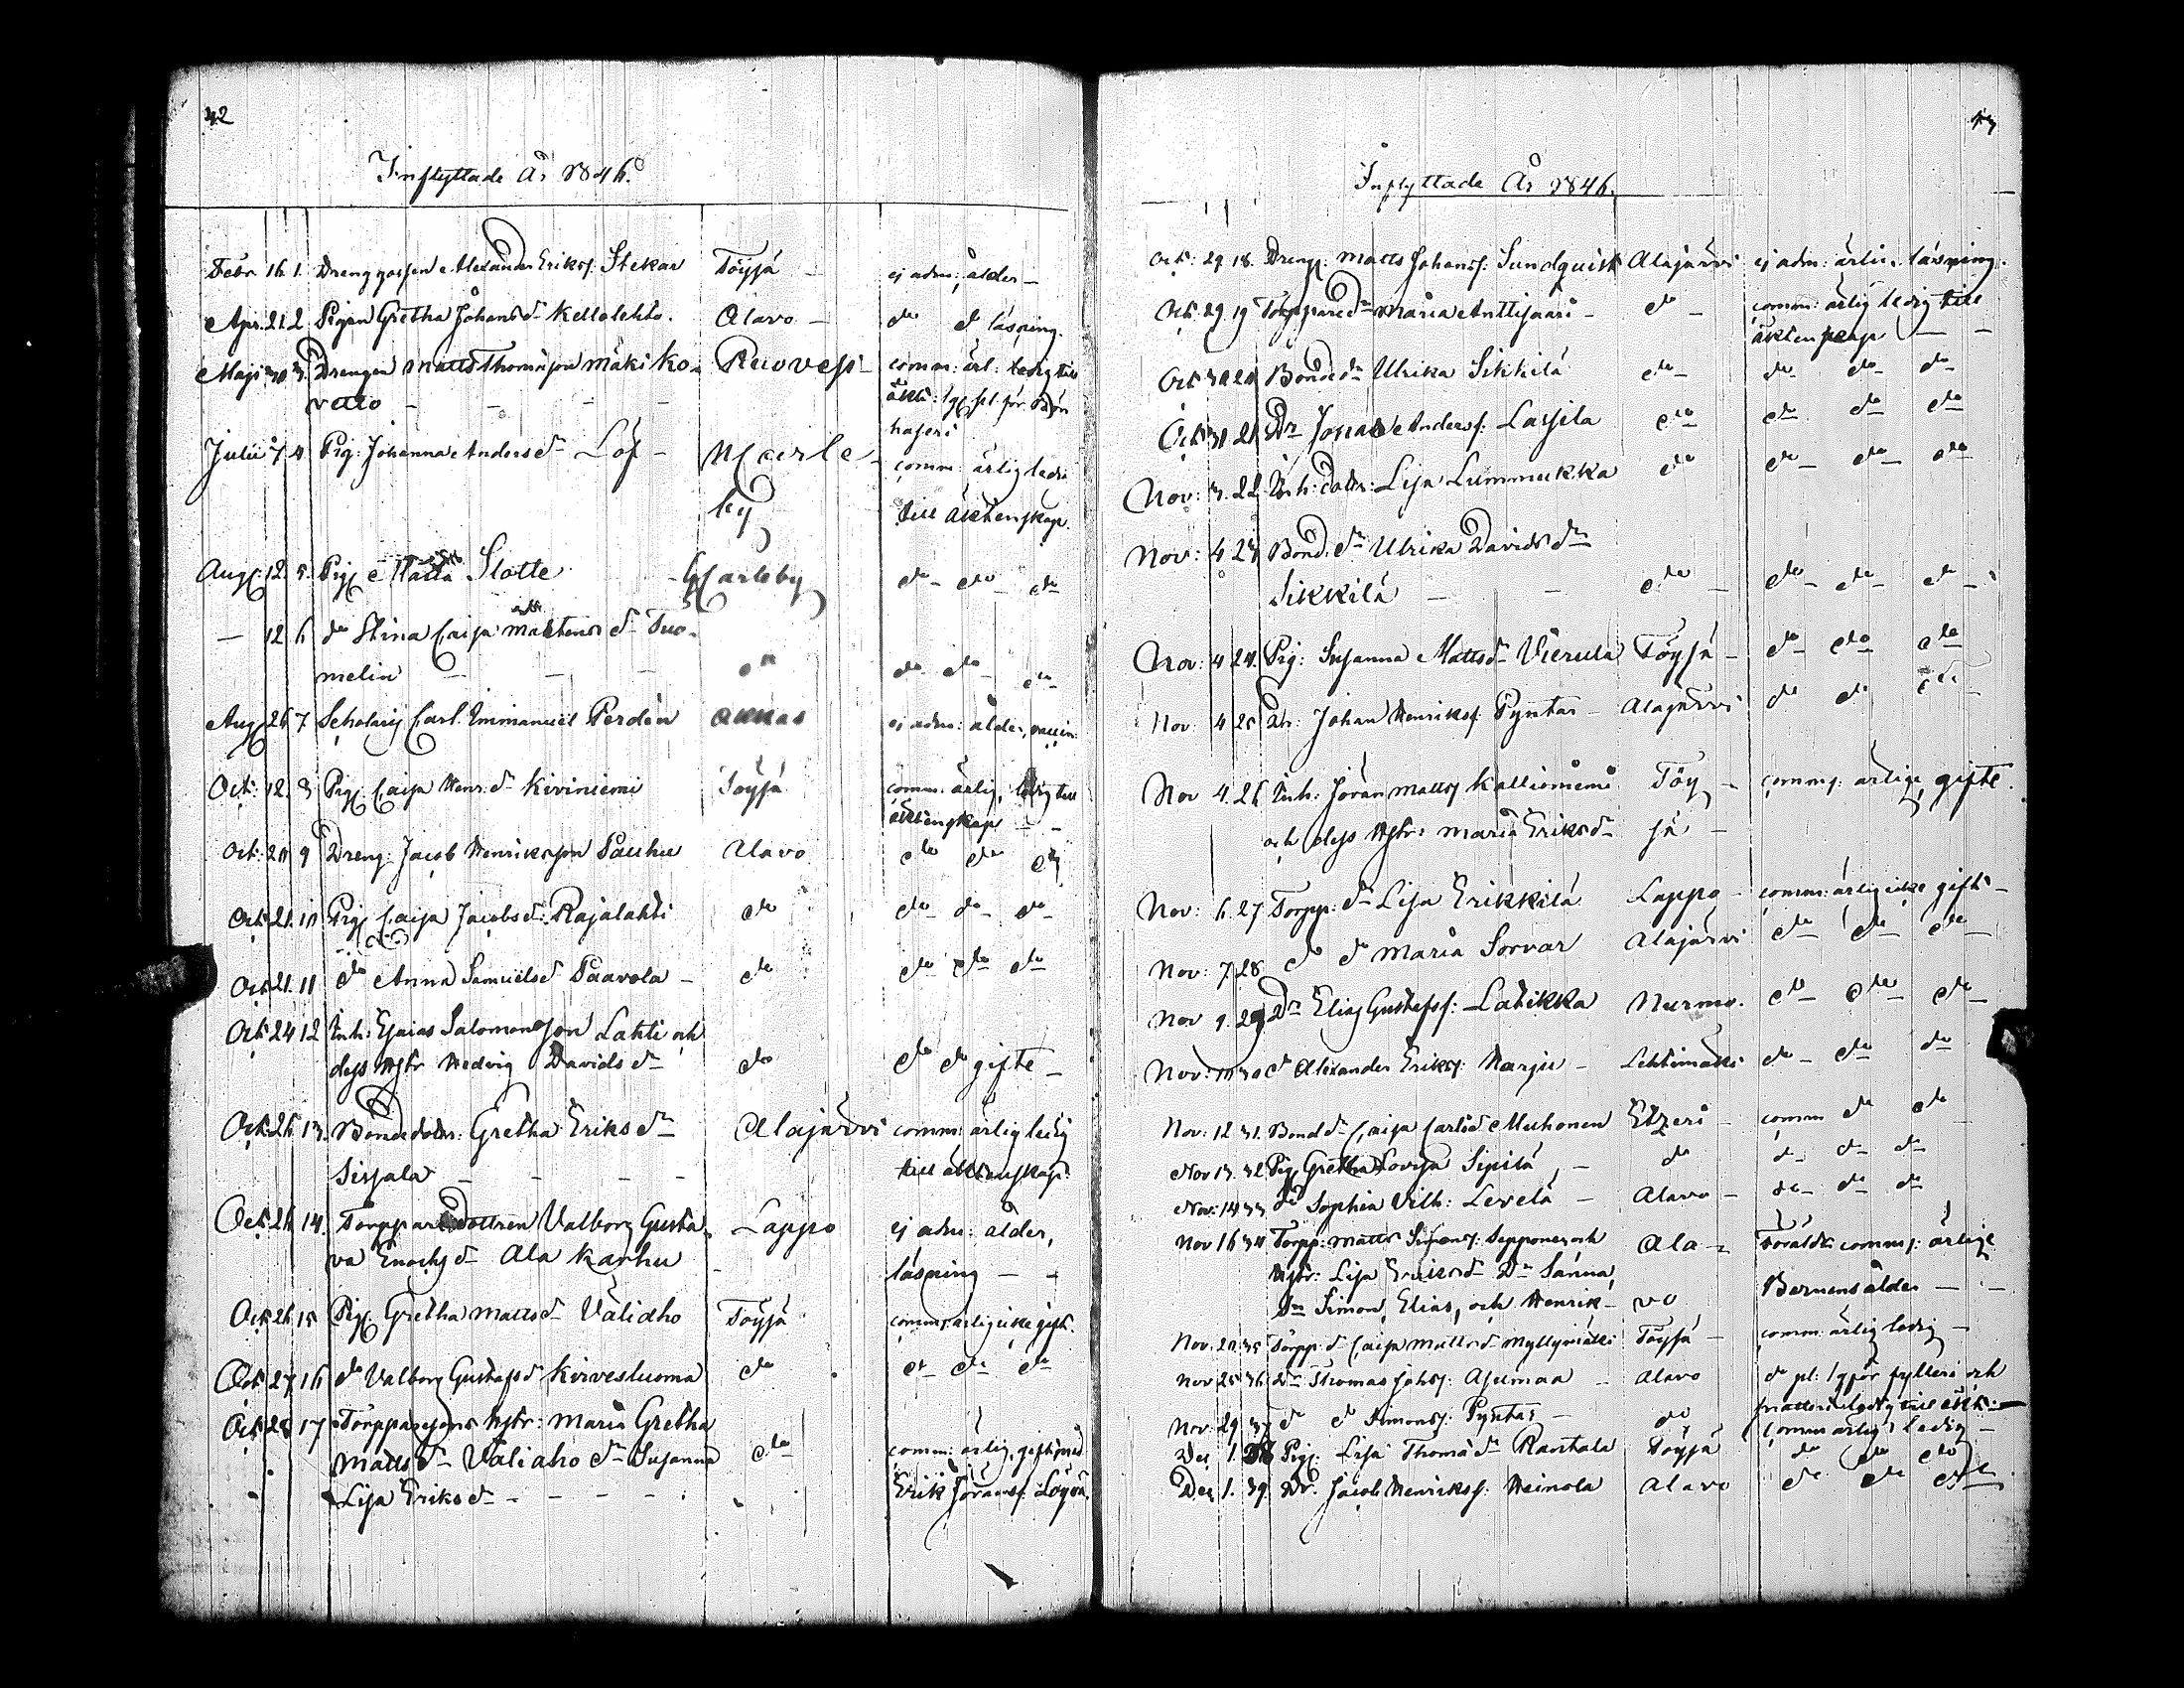 42
Inflyttade År 1846.
Febr 16 1. Drenggossen Alexander Erikss: Stekar Töysä ej adm: ålder –
Apr. 21 2 Pigan Gretha Johans dr Kellolehto. Alavo – do do läsning.
Maji 30 3. Drengen Matts Thomasson Mäki ko- Ruovesi – comm: ärl: ledig till
vetto – – – –
Julii 7 4 Pig: Johanna Anders dr Löf – N Carle- comm: ärlig ledi
by till äktenskap
Aug: 12. 5. Pig: Slotte G Carleby do – do do
— 12 6 do Stina Caisa dr Tuo-
melin – – – do do do do
Aug 26 7 Scholaris Carl Emmanuel Perdén Akkas ej adm: ålder, vaccin:
Oct: 12. 8 Pig: Caisa Henr: dr Kiviniemi Töysä comm: ärlig, ledig till
äktenskap – –
Oct: 20 9 Dreng: Jacob Henriksson Pauhu Alavo do do do
Oct: 21. 10 Pig: Caisa Jacobs dr Rajalahti do do – do – do
Oct 21. 11 do Anna Samuels dr Paavola – do do do do
Oct: 24 12 Inh: Esaias Salomonsson Lahti och
dess hstr Hedvig Davids dr do do do gifte –
Oct: 26 13. Bondedotr: Gretha Eriks dr Alajärvi comm: ärlig ledig
Sissala – – – – till äktenskap
Oct: 26 14. Torppare dottren Valborg Gusta- Lappo ej adm: ålder,
va Enochs dr Ala Karhu – läsning – –
Oct: 26 15 Pig: Gretha Matts dr Väliaho Töysä comm: ärlig icke gift.
Oct: 27 16 do Valborg Gustafs dr Kirvesluoma do do do do
Oct: 28 17 Torpparesons hstr: Maria Gretha
Matts dr Väliaho dr Susanna do comm: ärlig, gift med
Lisa Eriks dr – – – – Erik Jöranss:
Inflyttade År 1846.
Oct: 29 18. Dreng: Matts Johanss: Sundquist Alajärvi ej adm: ärli: läsning.
Oct: 29 19 Torppare dr Maria Anttisaari – do – comm: ärlig ledig till
äktenskap – –
Oct: 30 20 Bonde dr Ulrika Sikkilä do – do do do
Oct: 31 21. Dr Jonas Anderss: Lassila do do do do
Nov: 3. 22. Inh: dotr: Lisa Lummukka do do – do – do
Nov: 4 23 Bond: dr Ulrika Davids dr
Sikkilä – – do – do – do – do –
Nov: 4 24. Pig: Susanna Matts dr Vierula Töysä – do do do
Nov: 4 25 Dr: Johan Henrikss: Pyntar – Alajärvi do do do
Nov 4. 26 Inh: Jöran Mattss Kallioniemi Töy – comms: ärlige, gifte.
och dess Hstr: Maria Eriks dr sä –
Nov: 6 27 Torpp: dr Lisa Erikkilä Lappo – comm: ärlig icke gift –
Nov: 7 28 do do Maria Sorvar Alajärvi do do do –
Nov 9. 29 Dr Elias Gustafss: Latikka Nurmo. do – do – do –
Nov: 10 30 do Alexander Erikss: Harju – Lehtimäki do – do do
Nov: 12 31. Bond dr Caisa Carls dr Muhonen Etzeri – comm do do –
Nov 13. 32 Pig: Gretha Lovisa Sipilä, – do do do do
Nov: 14 33 do Sophia Vilh: Levelä – Alavo – do – do do
Nov 16 34 Torpp: Matts Simonss: Sepponen och Ala – Föräldr: comms: ärlige
Hstr: Lisa Eriks dr Dr Sanna,
Sn Simon, Elias, och Henrik – vo Barnens ålder – –
Nov: 20 35 Torpp: dr Caisa Matts dr Myllymäki Töysä – comm: ärlig ledig –
Nov 25 36 Dr Thomas Johss: Asumaa – Alavo
Nov: 29 37 do do Simonss: Pyntar – do comm ärlig ledig –
Dec 1. 38 Pig: Lisa Thoma dr Rantala Töysä do do do
Dec 1. 39 Dr. Jacob Henrikss: Heinola Alavo do do do